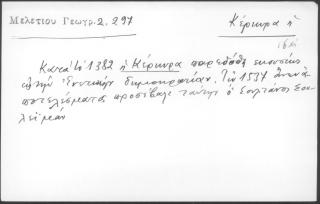 Μελετίου Γεωγρ. 2, 297
Κέρκυρα ἡ
Κατὰ τὸ 1382 ἡ Κέρκυρα παρεδόθη ἑκουσίως
εἰς τὴν Ἑνετικὴν δημοκρατίαν. Τῷ 1537 ἄνευ ἀ-
ποτελέσματος προσέβαλε ταύτην ὁ Σουλτάνος Σου-
λεϊμάν